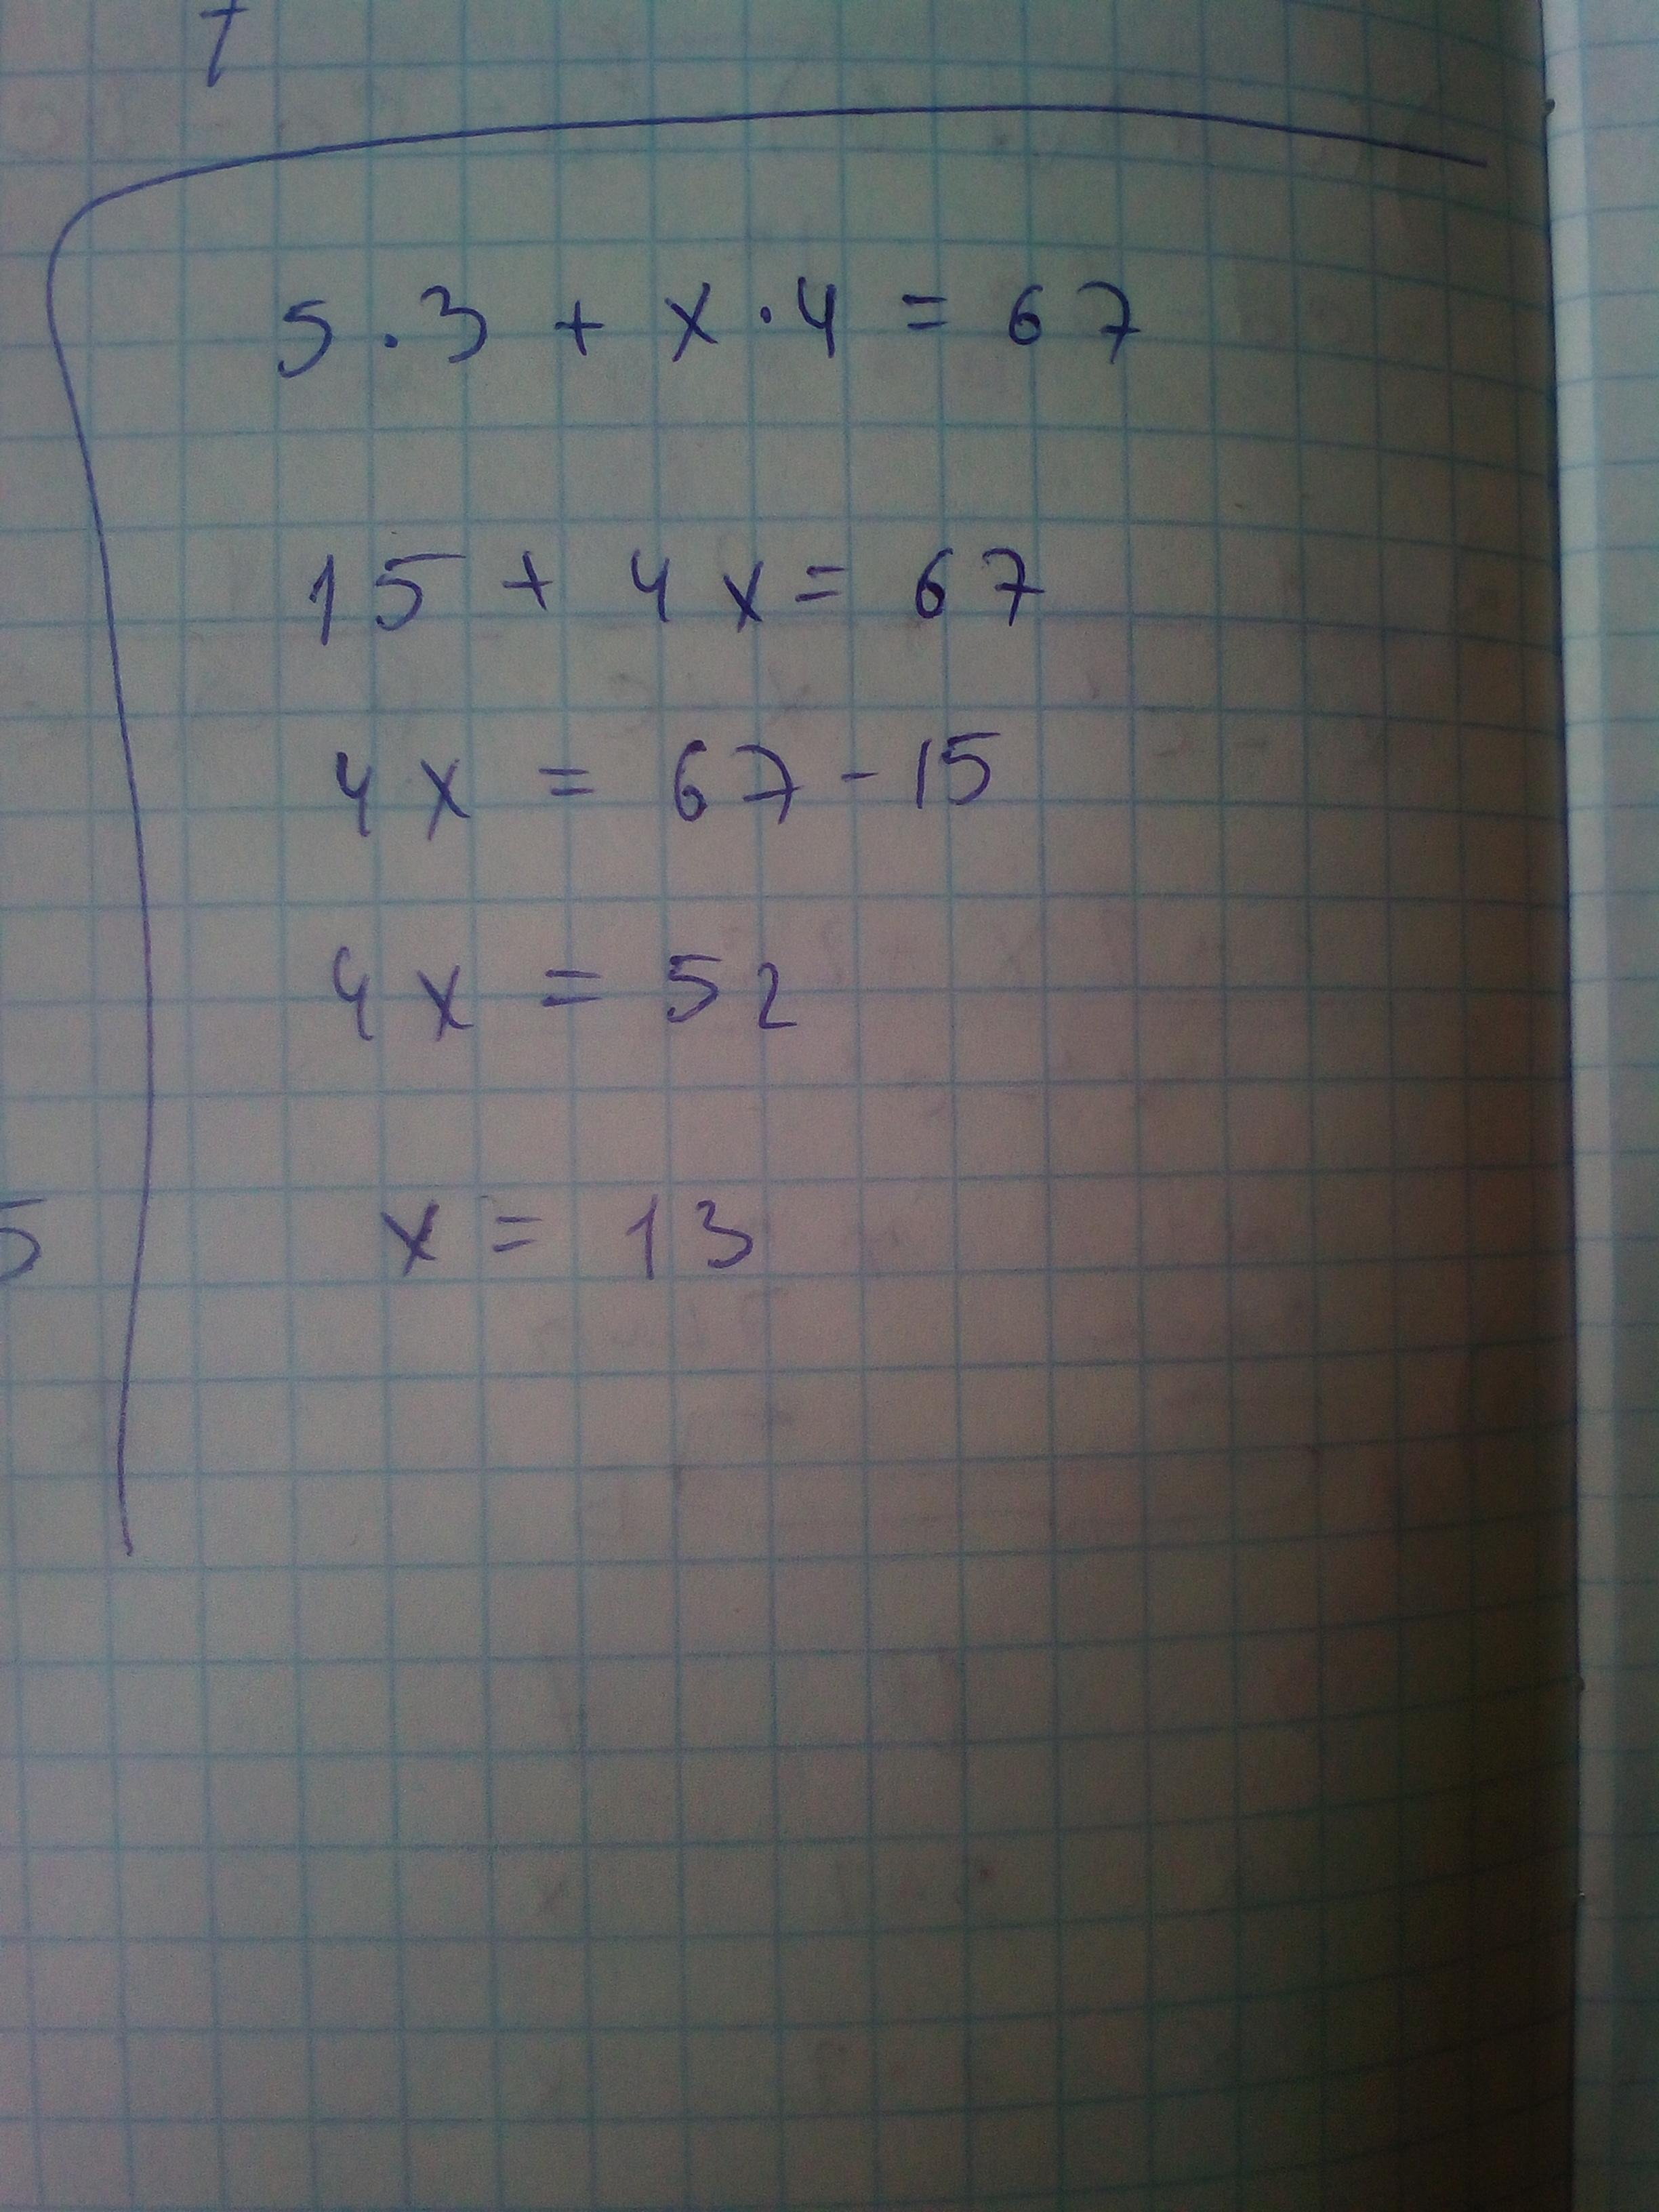 7
5 · 3 + x · 4 = 67
15 + 4x = 67
4x = 67 - 15
4x = 52
5
x = 13